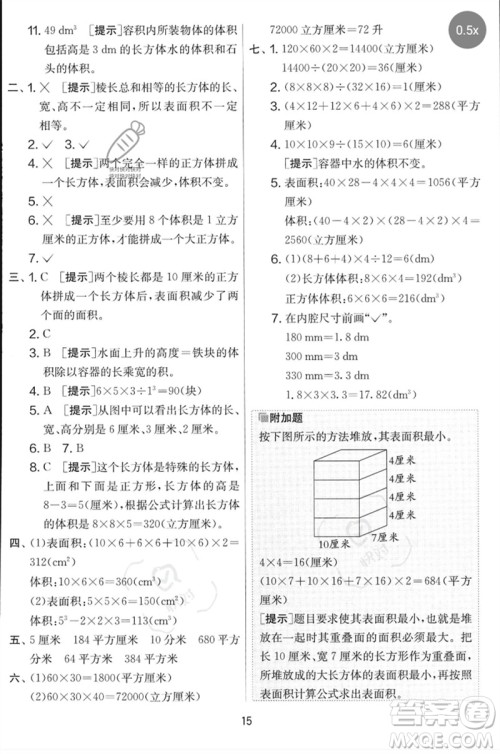 11. 49 dm³ [提示]容积内所装物体的体积
包括高是 3 dm 的长方体水的体积和石
头的体积。
二、1. ✕ [提示]棱长总和相等的长方体的长、
宽、高不一定相同，所以体积不一定相
等，所以表面积不一定相等。
2. ✓ 3. ✓
4. ✕ [提示]两个完全一样的正方体拼成
一个长方体，表面积减少，体积不变。
5. ✕
6. ✓ [提示]至少要用 8 个体积是 1 立方
厘米的正方体，才能拼成一个大正方体。
三、1. C [提示]两个棱长都是 10 厘米的正
方体拼成一个长方体，表面积减少了两
个面的面积。
2. C
3. B [提示]水面上升的高度=铁块的体
积除以容器的长乘宽的积。
4. B [提示]6×5×3÷1³=90(块)
5. A [提示]从图中可以看出长方体的长、
宽、高分别是 6 dm、6 dm、2 dm。
6. B 7. B
8. B [提示]这个长方体是特殊的长方体,
有一组面是正方形，原来长方体的高是
8−3=5(厘米)，根据公式计算出长方体
的体积是 8×8×5=320(立方厘米)。
四、(1)表面积：(10×6+6×6+10×6)×2=
312(cm²)
体积：10×6×6=360(cm³)
(2)表面积：(5×2+2×3+5×3)×2=
62(cm²)
体积：5×2×2×3=60(cm³)
五、5 厘米 184 平方厘米 192 平方厘米 680
平方厘米 64 平方厘米
六、(1)60×30=1800(平方厘米)
(2)60×30×40=72000(立方厘米)
72000 立方厘米=72 升
七、1. 120×60×2=14400(立方厘米)
14400÷(30×20)=24(厘米)
2. (8+8÷2)÷(32÷16)=6(厘米)
3. (4×12+12×6+4×6)×2=288(平方
厘米)
4. 10×10×9÷(10×6)=15(厘米)
[提示]容器中水的体积不变。
5. 表面积：40×28−4×4×4=1056(平方
厘米)
体积：(40−4×2)×(28−4×2)×4=
2560(立方厘米)
6. (1)(8+6+4)÷3=6(dm)
(2)长方体体积：8×6×4=192(dm³)
正方体体积：6×6×6=216(dm³)
7. 在内腔尺寸前画“✓”。
180 mm=1.8 dm
330 mm=3.3 dm
1.8×3.3×3=17.82(dm³)
附加题
按下图所示的方法堆放，其表面积最小。
4厘米
4厘米
10厘米 7厘米
4×4=16(厘米)
(10×7+10×16+7×16)×2=684(平方
厘米)
[提示]题目要求表面积最小，也就是堆
放在一起时其重叠面的面积要最大，所
以以 10 厘米、7 厘米的长方形作为重叠
面堆放，表面积最小，再根据长方体的
表面积计算公式求出表面积。
15
0.5x
答案圈
MXQE.COM